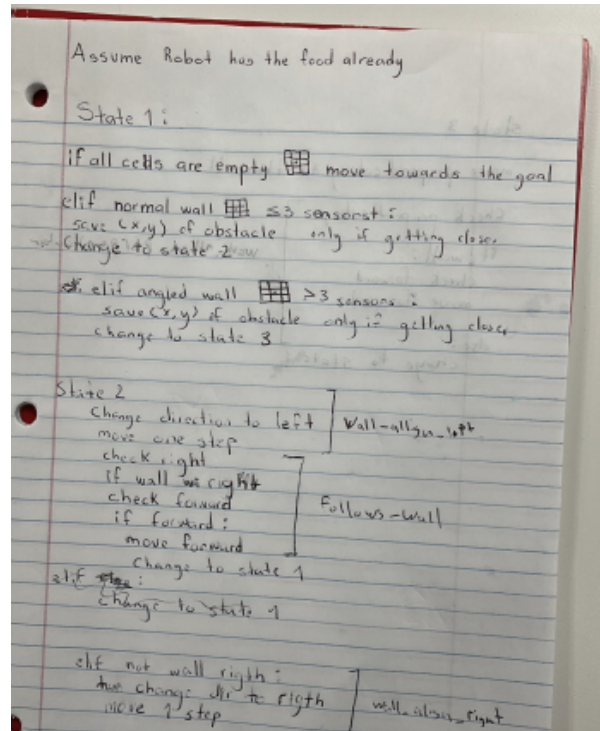 Assume Robot has the food already
State 1:
if all cells are empty move towards the goal
elif normal wall ≤3 sensorst:
save (x,y) of obstacle only if getting close.
Change to state 2
elif angled wall >3 sensors:
save (x,y) of obstacle only if getting close,
change to state 3
State 2
Change direction to left
move one step
Wall-align-left
check right
if wall right
check forward
if forward:
move forward
Change to state 1
Follows-wall
elif :
Change to state 1
elif not wall rigth:
change dir to rigth
move 1 step
wall_align_right